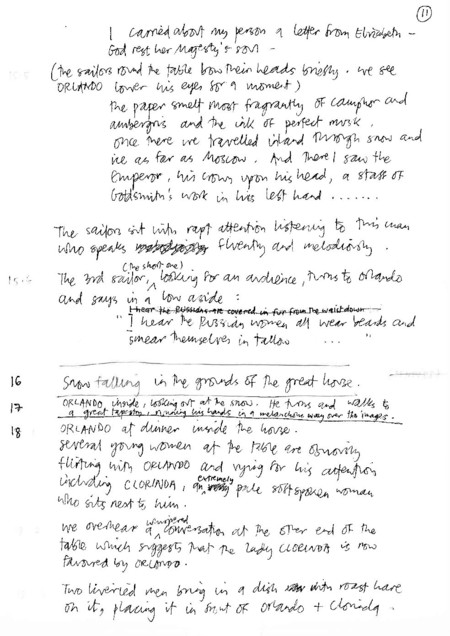 11
I carried about my person a letter from Elizabeth -
God rest her Majesty's soul -
(the sailors round the table bow their heads briefly. we see
ORLANDO lower his eyes for a moment)
the paper smelt most fragrantly of camphor and
ambergris and the ink of perfect musk.
once there we travelled inland through snow and
ice as far as Moscow. And there I saw the
Emperor, his crown upon his head, a staff of
Goldsmith's work in his left hand .......
The sailors sit with rapt attention listening to this man
who speaks fluently and melodiously.
The 3rd sailor, (the short one) looking for an audience, turns to Orlando
and says in a low aside:
I hear the Russians are covered in fur from the waist down
"I hear the Russian women all wear beards and
smear themselves in tallow .... "
16 Snow falling in the grounds of the great house.
17 ORLANDO inside, looking out at the snow. He turns and walks to
a great tapestry, running his hands in a melancholic way over the images.
18 ORLANDO at dinner inside the house.
Several young women at the table are obviously
flirting with ORLANDO and vying for his attention
including CLORINDA, an extremely pale soft spoken woman
who sits next to him.
we overhear a whispered conversation at the other end of the
table which suggests that the lady CLORINDA is now
favoured by ORLANDO.
Two liveried men bring in a dish with roast hare
on it, placing it in front of Orlando + Clorinda.